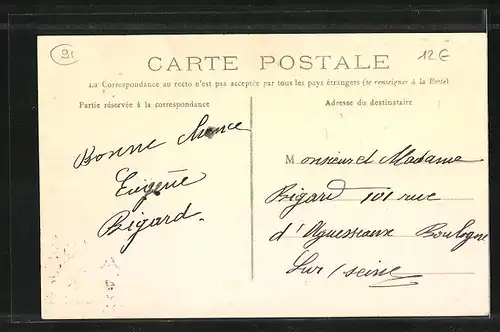 91
12€
CARTE POSTALE
La Correspondance au recto n'est pas acceptée par tous les pays étrangers (se renseigner à la Poste)
Partie réservée à la correspondance
Adresse du destinataire
Bonne Chance
Eugène
Bigard
Monsieur et Madame
Bigard 101 rue
d'Aguesseaux Boulogne
Sur/seine